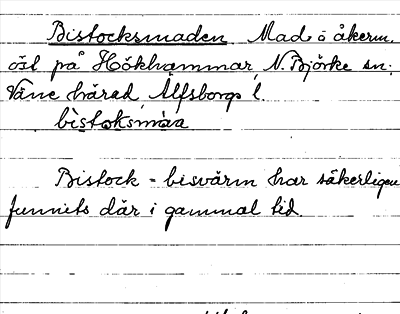 Bistocksmaden Mad ö åkerm.
öst på Hökhammar, N. Björke sn.
Väne härad, Älfsborgs l.
bistoksmáa
Bistock = bisvärm har säkerligen
funnits där i gammal tid.